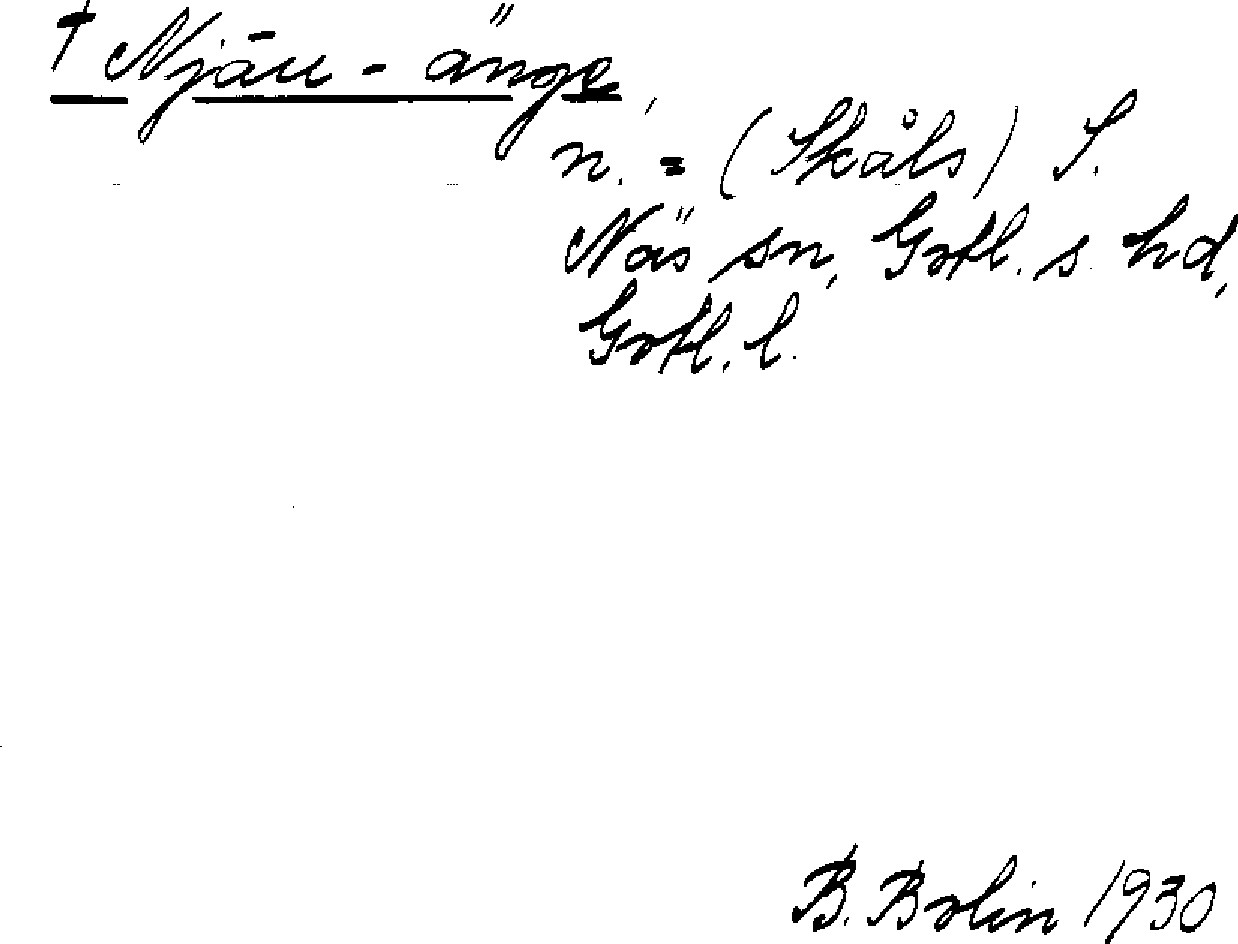 † Njāu-änge,
n. = (Skåls) S.
Näs sn, Gotl. s. hd,
Gotl. l.
B. Bolin 1930